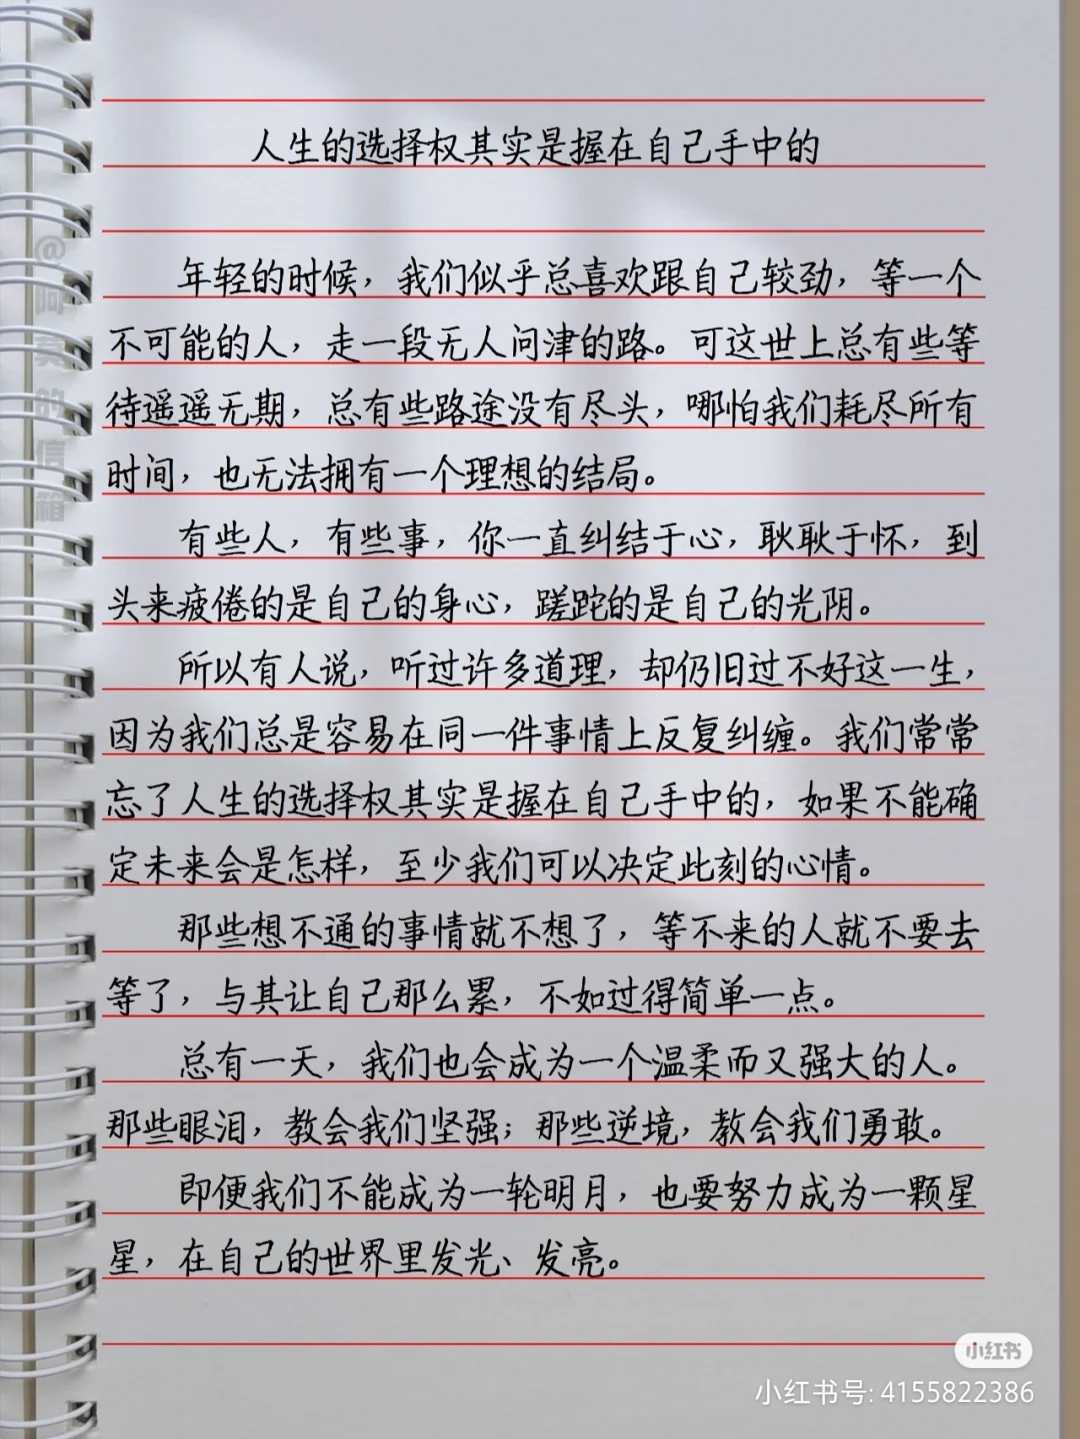 人生的选择权其实是握在自己手中的
年轻的时候，我们似乎总喜欢跟自己较劲，等一个
不可能的人，走一段无人问津的路。可这世上总有些等
待遥遥无期，总有些路途没有尽头，哪怕我们耗尽所有
时间，也无法拥有一个理想的结局。
有些人，有些事，你一直纠结于心，耿耿于怀，到
头来疲倦的是自己的身心，蹉跎的是自己的光阴。
所以有人说，听过许多道理，却仍旧过不好这一生，
因为我们总是容易在同一件事情上反复纠缠。我们常常
忘了人生的选择权其实是握在自己手中的，如果不能确
定未来会是怎样，至少我们可以决定此刻的心情。
那些想不通的事情就不想了，等不来的人就不要去
等了，与其让自己那么累，不如过得简单一点。
总有一天，我们也会成为一个温柔而又强大的人。
那些眼泪，教会我们坚强；那些逆境，教会我们勇敢。
即便我们不能成为一轮明月，也要努力成为一颗星
星，在自己的世界里发光、发亮。
小红书
小红书号: 4155822386